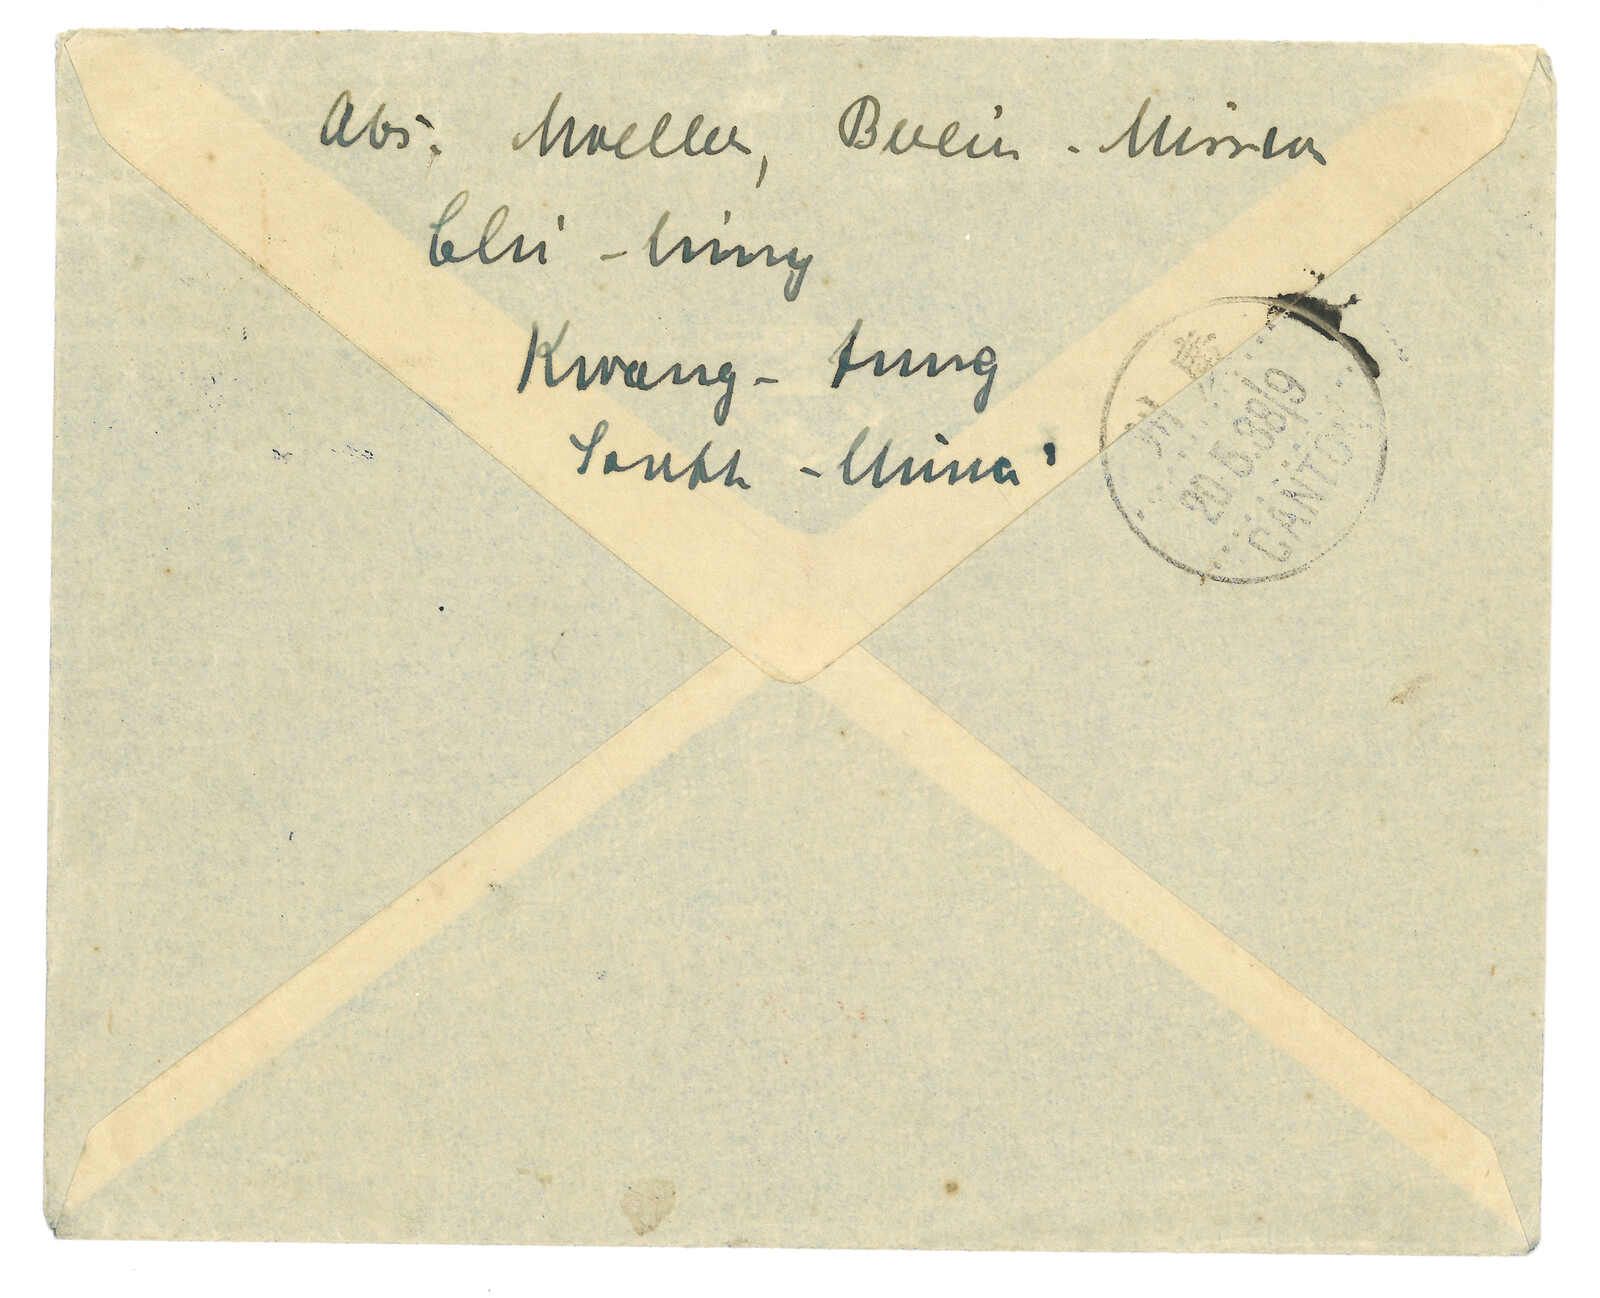 Abs. Moeller, Berlin - Mission
Chi - hing
Kwang - tung
South - China
廣州
20.5.38|9
CANTON